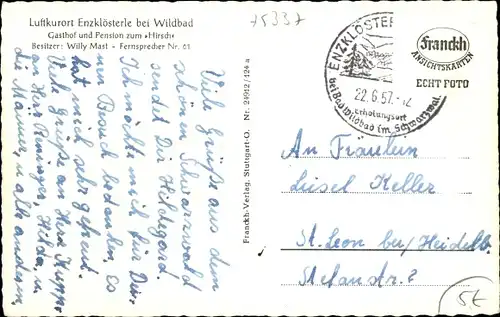 Luftkurort Enzklösterle bei Wildbad
Gasthof und Pension zum »Hirsch«
Besitzer: Willy Mast - Fernsprecher Nr. 61
75337
ENZKLÖSTER
22.6.57.-12
Erholungsort
bei Bad Wildbad im Schwarzwal
Franckh
ANSICHTSKARTEN
ECHT FOTO
Viele Grüße aus dem
schönen Schwarzwald
sendet Dir Hildegard.
Ich möchte mich für Dei-
nen Besuch bedanken, es
hat mich sehr gefreut.
Viele Grüße an Herr
an Herr Reninger, Hilda, u.
die Männer, u. alle anderen,
Franckh-Verlag, Stuttgart-O. Nr. 29912/124 a
An Fräulein
Luisel Keller
St. Leon bei Heidelb.
5€